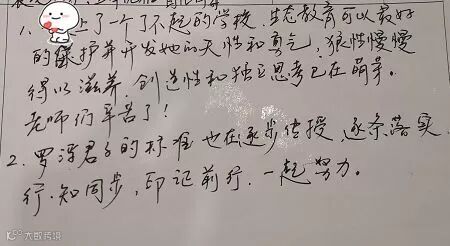 1. 上了一个了不起的学校。生态教育可以最好
的保护并开发她的天性和勇气，狼性慢慢
得以滋养，创造性和独立思考已在萌芽。
老师们辛苦了！
2. 罗浮君子的标准也在逐步传授，逐条落实
行.知同步，印记前行.一起努力。
大数跨境